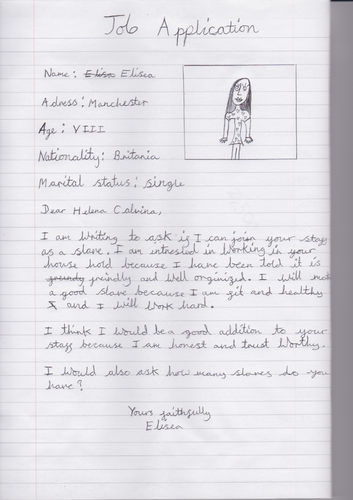 Job Application
Name: Elisa Elisea
Adress: Manchester
Age: VIII
Nationality: Britania
Marital status: single
Dear Helena Calvina,
I am writing to ask if I can join your staff
as a slave. I am intrested in working in your
house hold because I have been told it is
freindly and well orginized. I will make
a good slave because I am fit and healthy
and I will work hard.
I think I would be a good addition to your
staff because I am honest and trust worthy.
I would also ask how many slaves do you
have?
Yours faithfully
Elisea